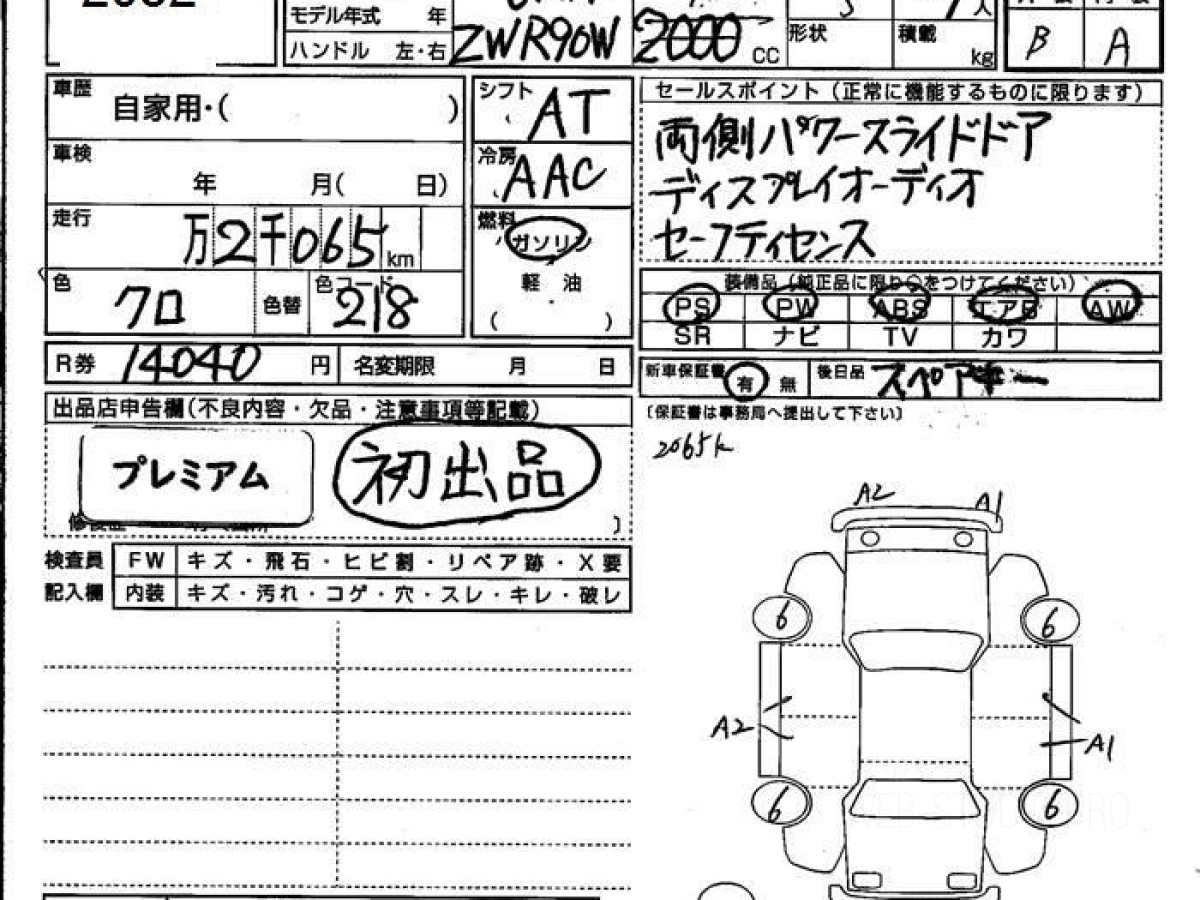 モデル年式 年
ハンドル 左・右 ZWR90W 2000 CC 形状 積載 kg B A
車歴 自家用・( )
シフト AT
車検 年 月( 日)
冷房 AAC
走行 万2千065 km
燃料 ガソリン
軽 油
( )
色 クロ 色替 色コード 218
R券 14040 円 名変期限 月 日
出品店申告欄(不良内容・欠品・注意事項等記載)
プレミアム 初出品
検査員 FW キズ・飛石・ヒビ割・リペア跡・X要
記入欄 内装 キズ・汚れ・コゲ・穴・スレ・キレ・破レ
セールスポイント(正常に機能するものに限ります)
両側パワースライドドア
ディスプレイオーディオ
セーフティセンス
装備品(純正品に限り○をつけてください)
PS PW ABS エアB AW
SR ナビ TV カワ
新車保証書 有 無 後日品 スペアキー
〔保証書は事務局へ提出して下さい〕
2065k
A2 A1
6 6
A2 A1
6 6